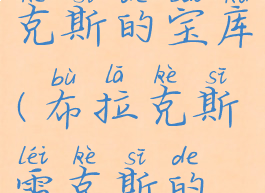 克斯的宝库
bù lā kè sī
(布拉克斯
léi kè sī de
雷克斯的